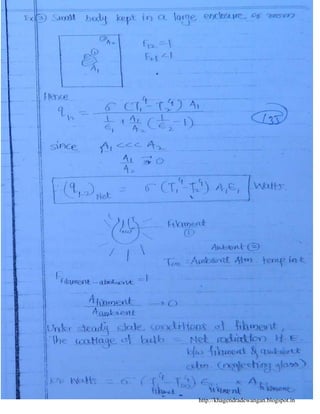 Ex ③ Small body kept in a large enclosure or room
A₂
A₁
F₁₂ = 1
F₂₁ < 1
Hence
q₁₂ = σ (T₁⁴ - T₂⁴) A₁ / (1/ε₁ + A₁/A₂ (1/ε₂ - 1))
135
since A₁ <<< A₂
A₁/A₂ → 0
(q₁₋₂)Net = σ (T₁⁴ - T₂⁴) A₁ε₁ Watts
Filament
①
Ambient ②
T∞ = Ambient Atm temp in K
F filament-ambient = 1
A filament / A ambient → 0
Under steady state conditions of filament,
The wattage of bulb = Net radiation H.E.
b/w filament & ambient
atm (neglecting glass)
Watts = σ (T⁴ - T∞⁴) ε A
filament filament filament
http://khagendradewangan.blogspot.in